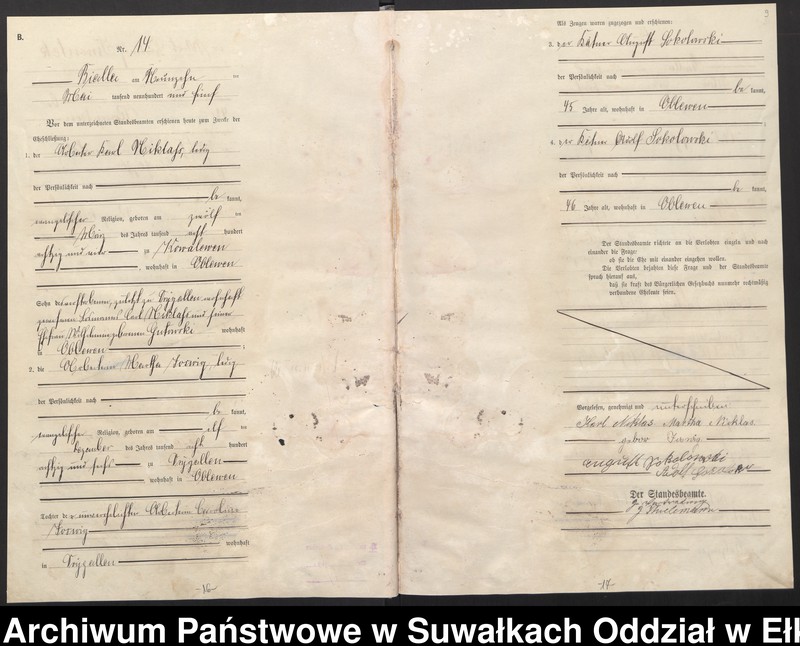 B.
Nr. 14
Bialla am neunzehn ten
Mai tausend neunhundert und fünf
Vor dem unterzeichneten Standesbeamten erschienen heute zum Zwecke der
Eheschließung:
1. der Arbeiter Karl Niklas, ledig
der Persönlichkeit nach
be kannt,
evangelischer Religion, geboren am zwölf ten
März des Jahres tausend acht hundert
achtzig und zu Kowalewen
, wohnhaft in Oblewen
Sohn des verstorbenen, zuletzt zu Drygallen wohnhaft
gewesenen Losmanns Carl Niklas und seiner
Ehefrau, Wilhelmine geborenen Gutowski wohnhaft
in Oblewen ;
2. die Arbeiterin Martha Jorwig, ledig
der Persönlichkeit nach
be kannt,
evangelischer Religion, geboren am elf ten
Dezember des Jahres tausend acht hundert
achtzig und sechs zu Drygallen
, wohnhaft in Oblewen
Tochter der unverehelichten Arbeiterin Caroline
Jorwig
wohnhaft
in Drygallen
-16-
3
Als Zeugen waren zugezogen und erschienen:
3. der Kätner August Sokolowski
der Persönlichkeit nach
be kannt,
45 Jahre alt, wohnhaft in Oblewen
;
4. der Kätner Adolf Sokolowski
der Persönlichkeit nach
be kannt,
46 Jahre alt, wohnhaft in Oblewen
Der Standesbeamte richtete an die Verlobten einzeln und nach
einander die Frage:
ob sie die Ehe mit einander eingehen wollen.
Die Verlobten bejahten diese Frage und der Standesbeamte
sprach hierauf aus,
daß sie kraft des Bürgerlichen Gesetzbuchs nunmehr rechtmäßig
verbundene Eheleute seien.
Vorgelesen, genehmigt und unterschrieben
Karl Niklas Martha Niklas
gebor Jorwig
August Sokolowski
Adolf
Der Standesbeamte.
In Vertretung
Thielemann
-17-
Archiwum Państwowe w Suwałkach Oddział w Ełk